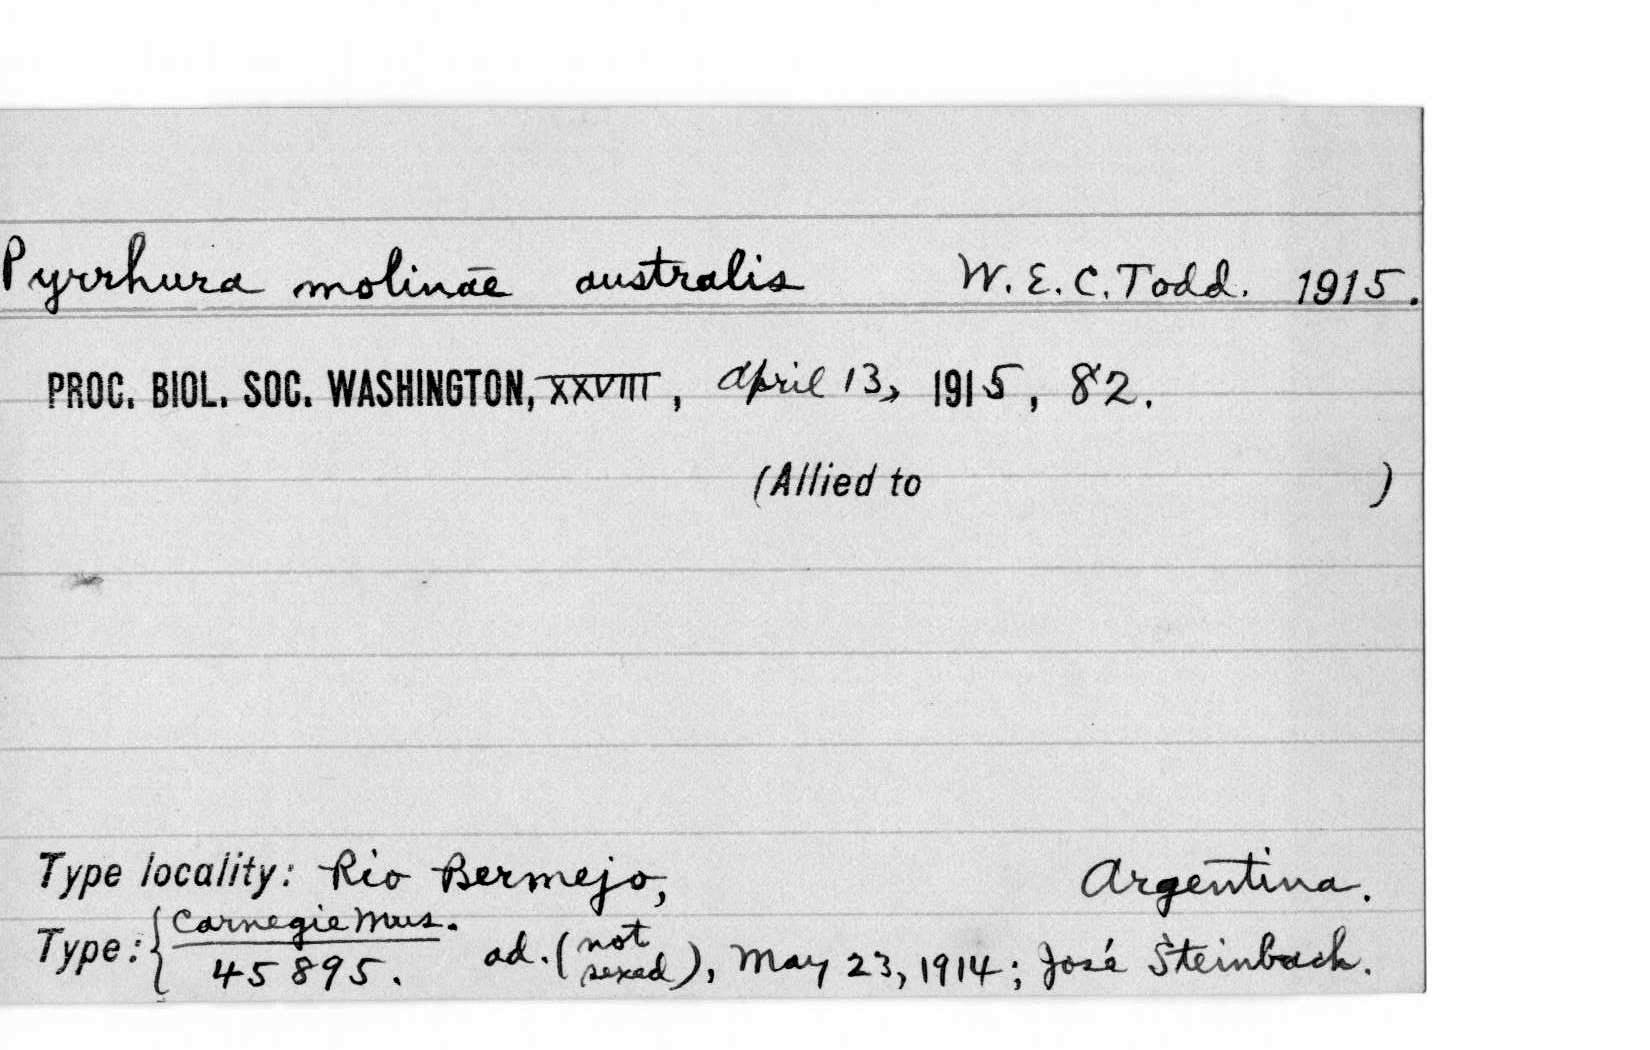 Pyrrhura molinae australis W. E. C. Todd. 1915.
PROC. BIOL. SOC. WASHINGTON, XXVIII, April 13, 1915, 82.
(Allied to )
Type locality: Rio Bermejo, Argentina.
Type: { Carnegie Mus.
45895. ad. (not sexed), May 23, 1914; José Steinbach.